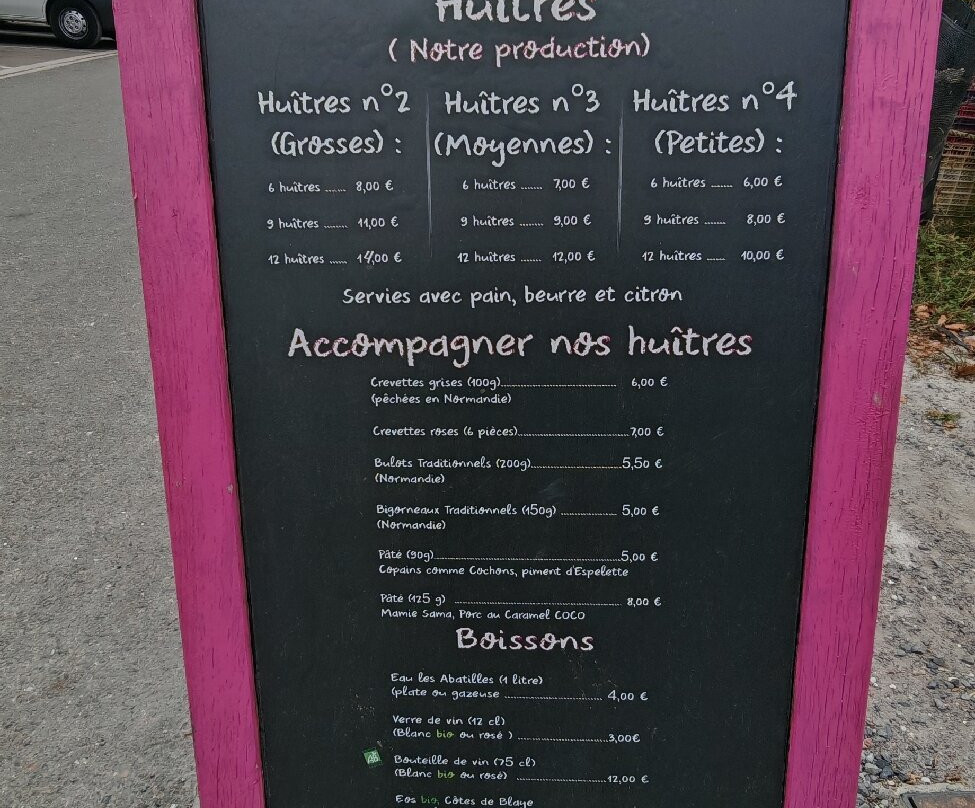 Huîtres
( Notre production)
Huîtres n°2 Huîtres n°3 Huîtres n°4
(Grosses) : (Moyennes) : (Petites) :
6 huîtres ...... 8,00 € 6 huîtres ...... 7,00 € 6 huîtres ...... 6,00 €
9 huîtres ....... 11,00 € 9 huîtres ....... 9,00 € 9 huîtres ...... 8,00 €
12 huîtres ..... 14,00 € 12 huîtres ...... 12,00 € 12 huîtres ..... 10,00 €
Servies avec pain, beurre et citron
Accompagner nos huîtres
Crevettes grises (100g)........................................ 6,00 €
(pêchées en Normandie)
Crevettes roses (6 pièces)......................................7,00 €
Bulots Traditionnels (200g)...............................5,50 €
(Normandie)
Bigorneaux Traditionnels (150g) ................... 5,00 €
(Normandie)
Pâté (90g)................................................................5,00 €
Copains comme Cochons, piment d'Espelette
Pâté (125 g) .......................................................... 8,00 €
Mamie Sama, Porc au Caramel COCO
Boissons
Eau les Abatilles (1 litre)
(plate ou gazeuse ................................... 4,00 €
Verre de vin (12 cl)
(Blanc bio ou rosé ) ................................3,00€
AB
Bouteille de vin (75 cl)
(Blanc bio ou rosé) ...............................12,00 €
Eos bio, Côtes de Blaye